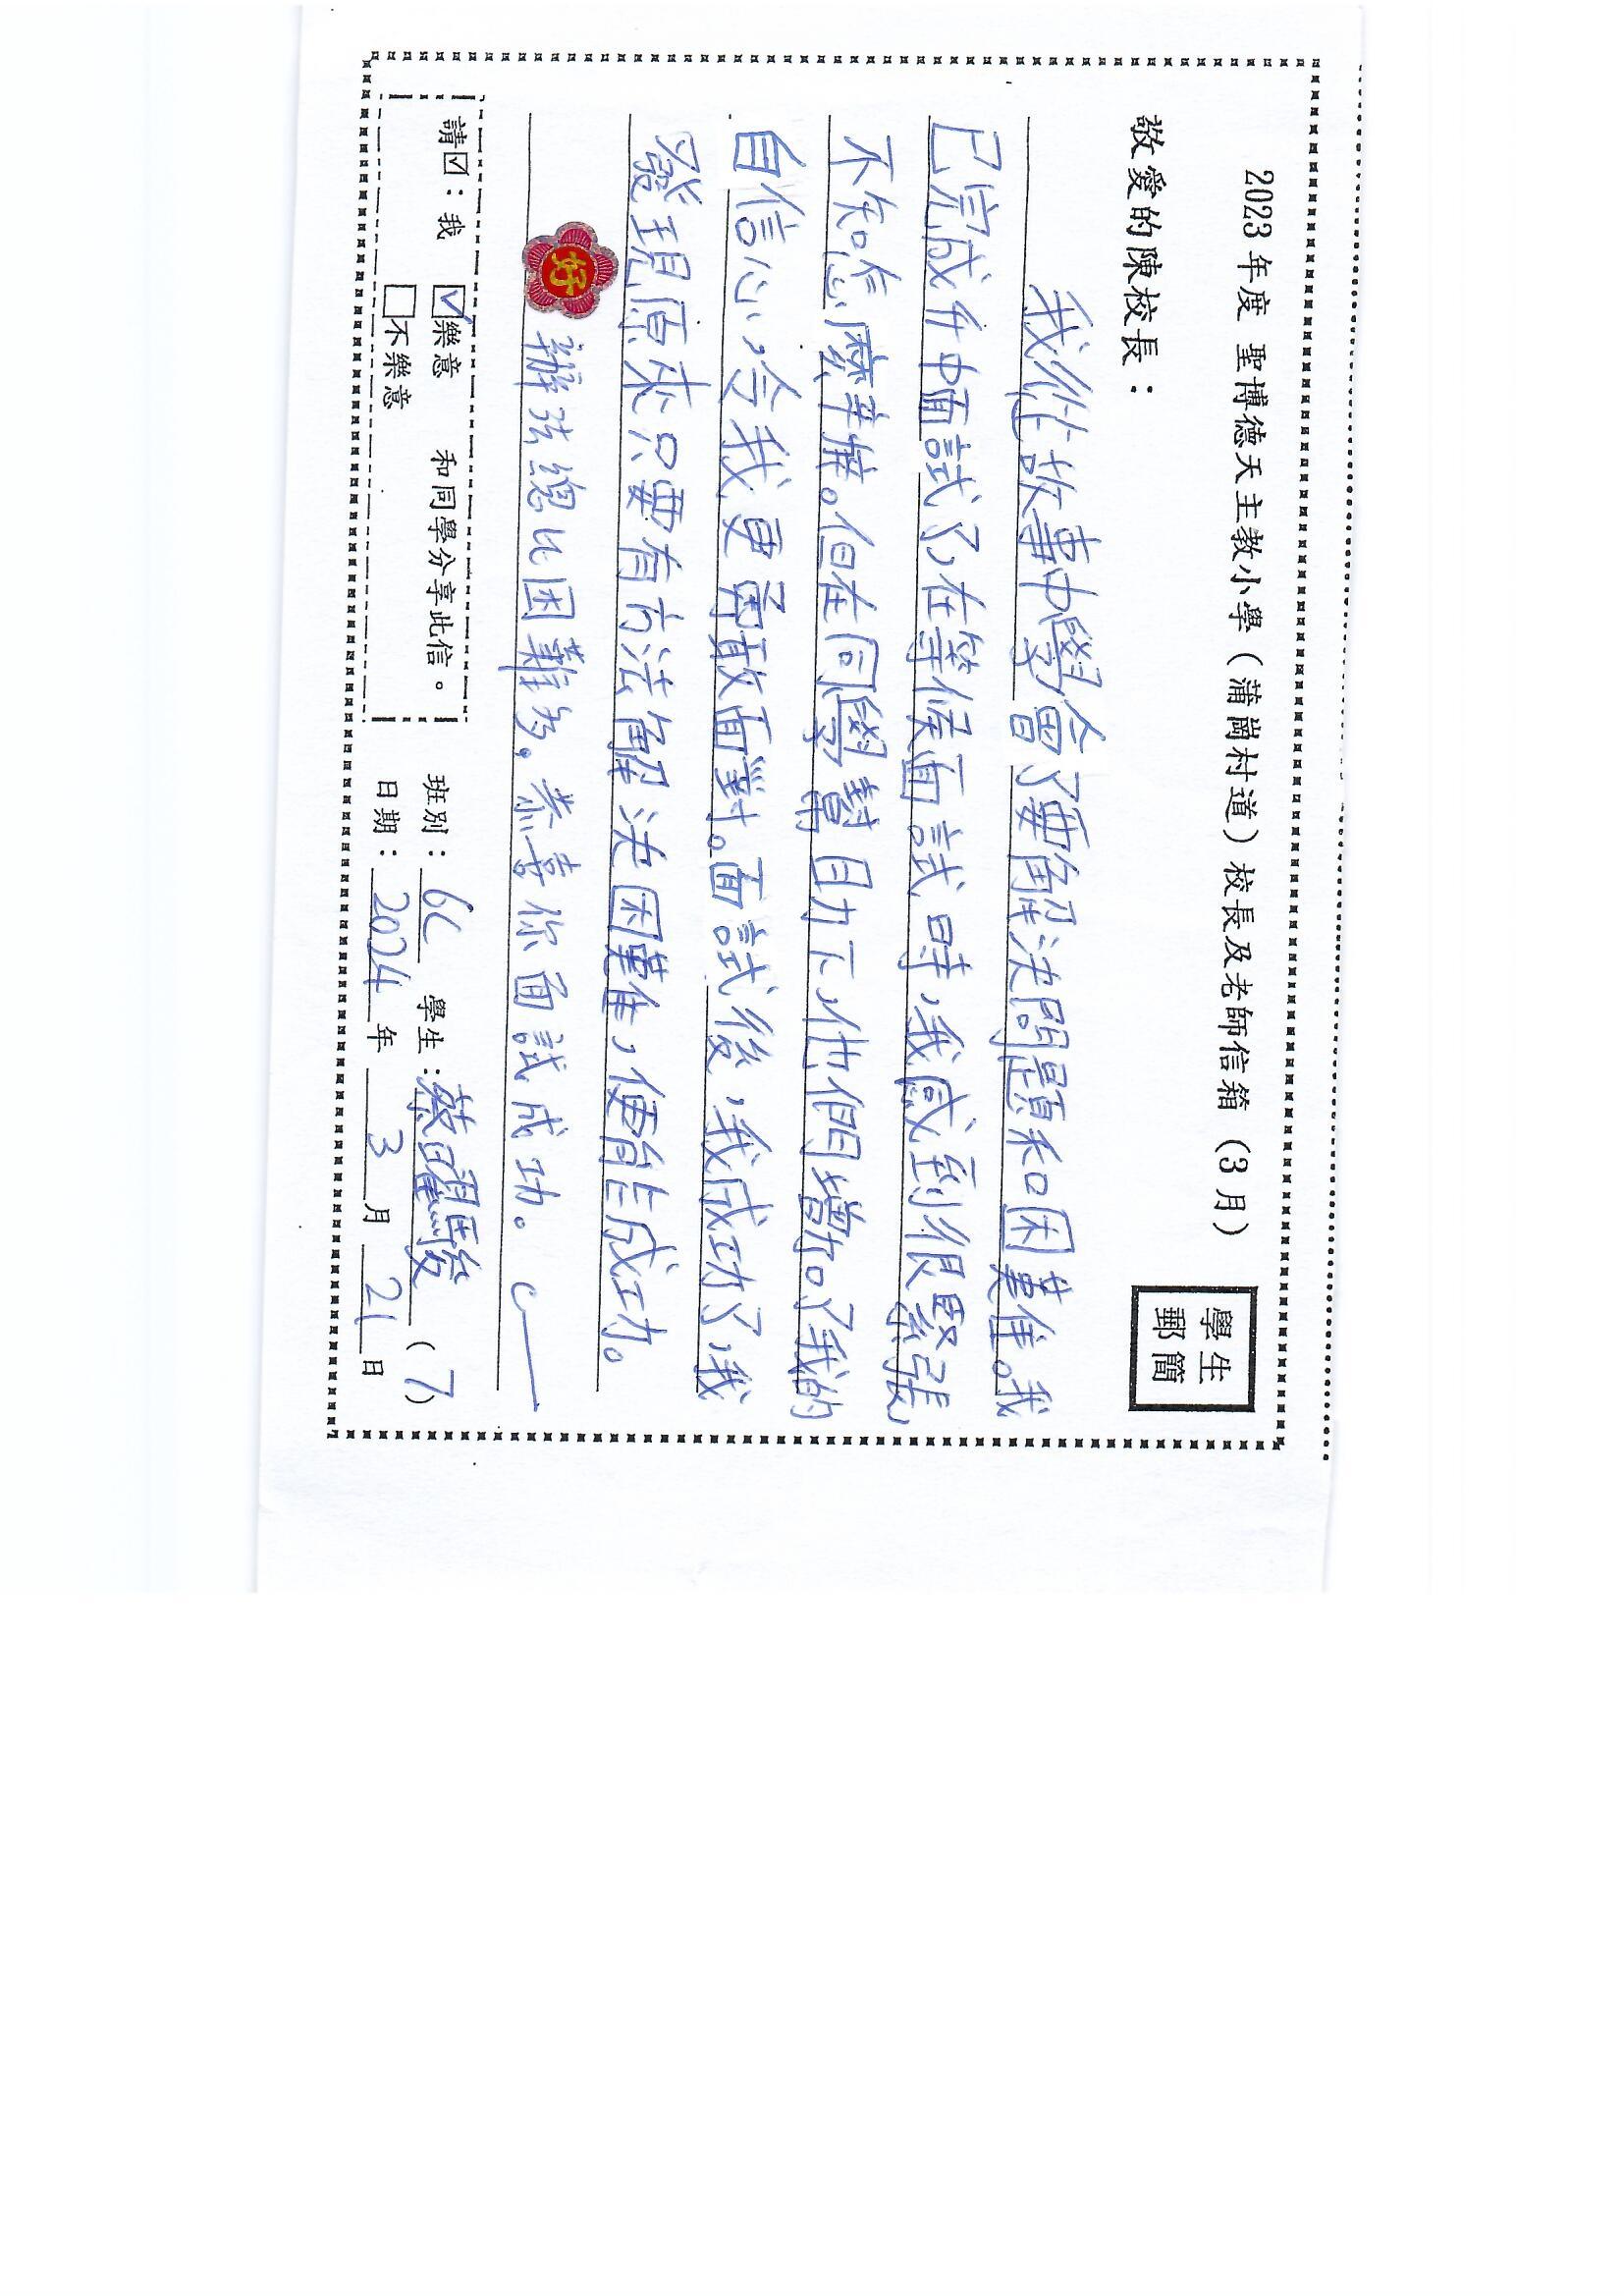 2023 年度 聖博德天主教小學（蒲崗村道）校長及老師信箱（3 月）
學生
郵簡
敬愛的陳校長：
我從故事中學會了要解決問題和困難。我
已完成升中面試了,在等候面試時,我感到很緊張
不知怎麼辦。但在同學幫助下,他們增加了我的
自信心,令我更勇敢面對。面試後,我成功了,我
發現原來只要有方法解決困難,便能成功。
好
辦法總比困難多。恭喜你面試成功。
請☑：我 ☑樂意 和同學分享此信。
□不樂意
班別：6C 學生：蔡曜駿 (7)
日期：2024 年 3 月 21 日